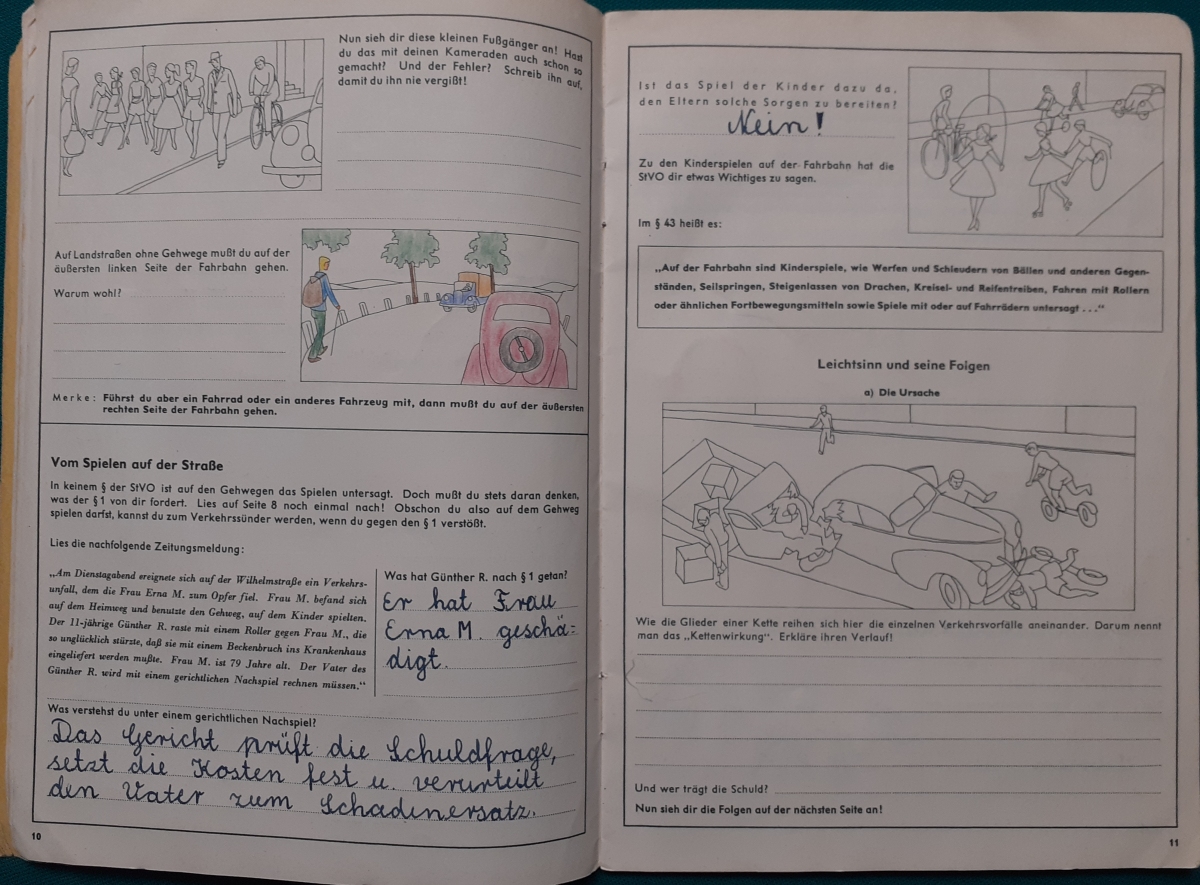 Nun sieh dir diese kleinen Fußgänger an! Hast
du das mit deinen Kameraden auch schon so
gemacht? Und der Fehler? Schreib ihn auf,
damit du ihn nie vergißt!
Auf Landstraßen ohne Gehwege mußt du auf der
äußersten linken Seite der Fahrbahn gehen.
Warum wohl?
Merke: Führst du aber ein Fahrrad oder ein anderes Fahrzeug mit, dann mußt du auf der äußersten
rechten Seite der Fahrbahn gehen.
Vom Spielen auf der Straße
In keinem § der StVO ist auf den Gehwegen das Spielen untersagt. Doch mußt du stets daran denken,
was der § 1 von dir fordert. Lies auf Seite 8 noch einmal nach! Obschon du also auf dem Gehweg
spielen darfst, kannst du zum Verkehrssünder werden, wenn du gegen den § 1 verstößt.
Lies die nachfolgende Zeitungsmeldung:
„Am Dienstagabend ereignete sich auf der Wilhelmstraße ein Verkehrs-
unfall, dem die Frau Erna M. zum Opfer fiel. Frau M. befand sich
auf dem Heimweg und benutzte den Gehweg, auf dem Kinder spielten.
Der 11-jährige Günther R. raste mit einem Roller gegen Frau M., die
so unglücklich stürzte, daß sie mit einem Beckenbruch ins Krankenhaus
eingeliefert werden mußte. Frau M. ist 79 Jahre alt. Der Vater des
Günther R. wird mit einem gerichtlichen Nachspiel rechnen müssen.“
Was hat Günther R. nach § 1 getan?
Er hat Frau
Erna M. geschä-
digt.
Was verstehst du unter einem gerichtlichen Nachspiel?
Das Gericht prüft die Schuldfrage,
setzt die Kosten fest u. verurteilt
den Vater zum Schadenersatz.
10
Ist das Spiel der Kinder dazu da,
den Eltern solche Sorgen zu bereiten?
Nein!
Zu den Kinderspielen auf der Fahrbahn hat die
StVO dir etwas Wichtiges zu sagen.
Im § 43 heißt es:
„Auf der Fahrbahn sind Kinderspiele, wie Werfen und Schleudern von Bällen und anderen Gegen-
ständen, Seilspringen, Steigenlassen von Drachen, Kreisel- und Reifentreiben, Fahren mit Rollern
oder ähnlichen Fortbewegungsmitteln sowie Spiele mit oder auf Fahrrädern untersagt ...“
Leichtsinn und seine Folgen
a) Die Ursache
Wie die Glieder einer Kette reihen sich hier die einzelnen Verkehrsvorfälle aneinander. Darum nennt
man das „Kettenwirkung“. Erkläre ihren Verlauf!
Und wer trägt die Schuld?
Nun sieh dir die Folgen auf der nächsten Seite an!
11